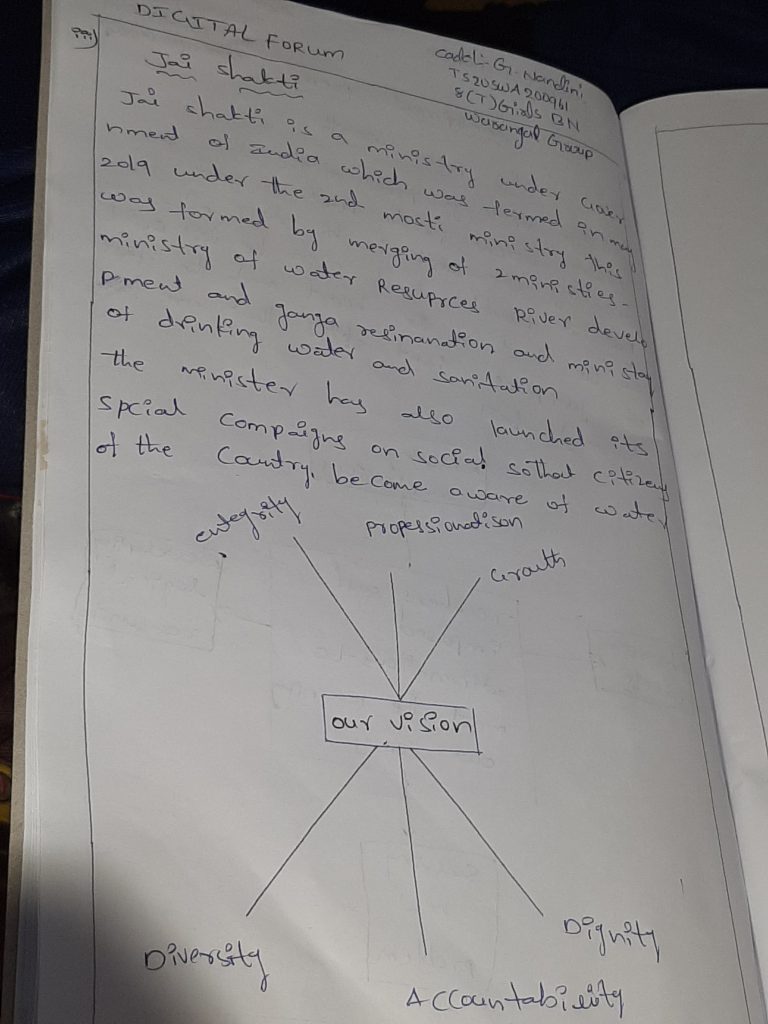 DIGITAL FORUM
Cadet:- G. Nandini
TS20SWA200961
8(T) Girls BN
Warangal Group
Jai shakti
Jai shakti is a ministry under Gover
nment of India which was termed in may
2019 under the 2nd mosti ministry this
was formed by merging of 2 ministies -
ministry of water Resuprces River develo
pment and ganga resinanation and ministay
of drinking water and sanitation
the minister has also launched its
spcial compaigns on social sothat citizens
of the Country. become aware of water
entegrity
propessionatison
Growth
our vision
Diversity
Accountability
Dignity